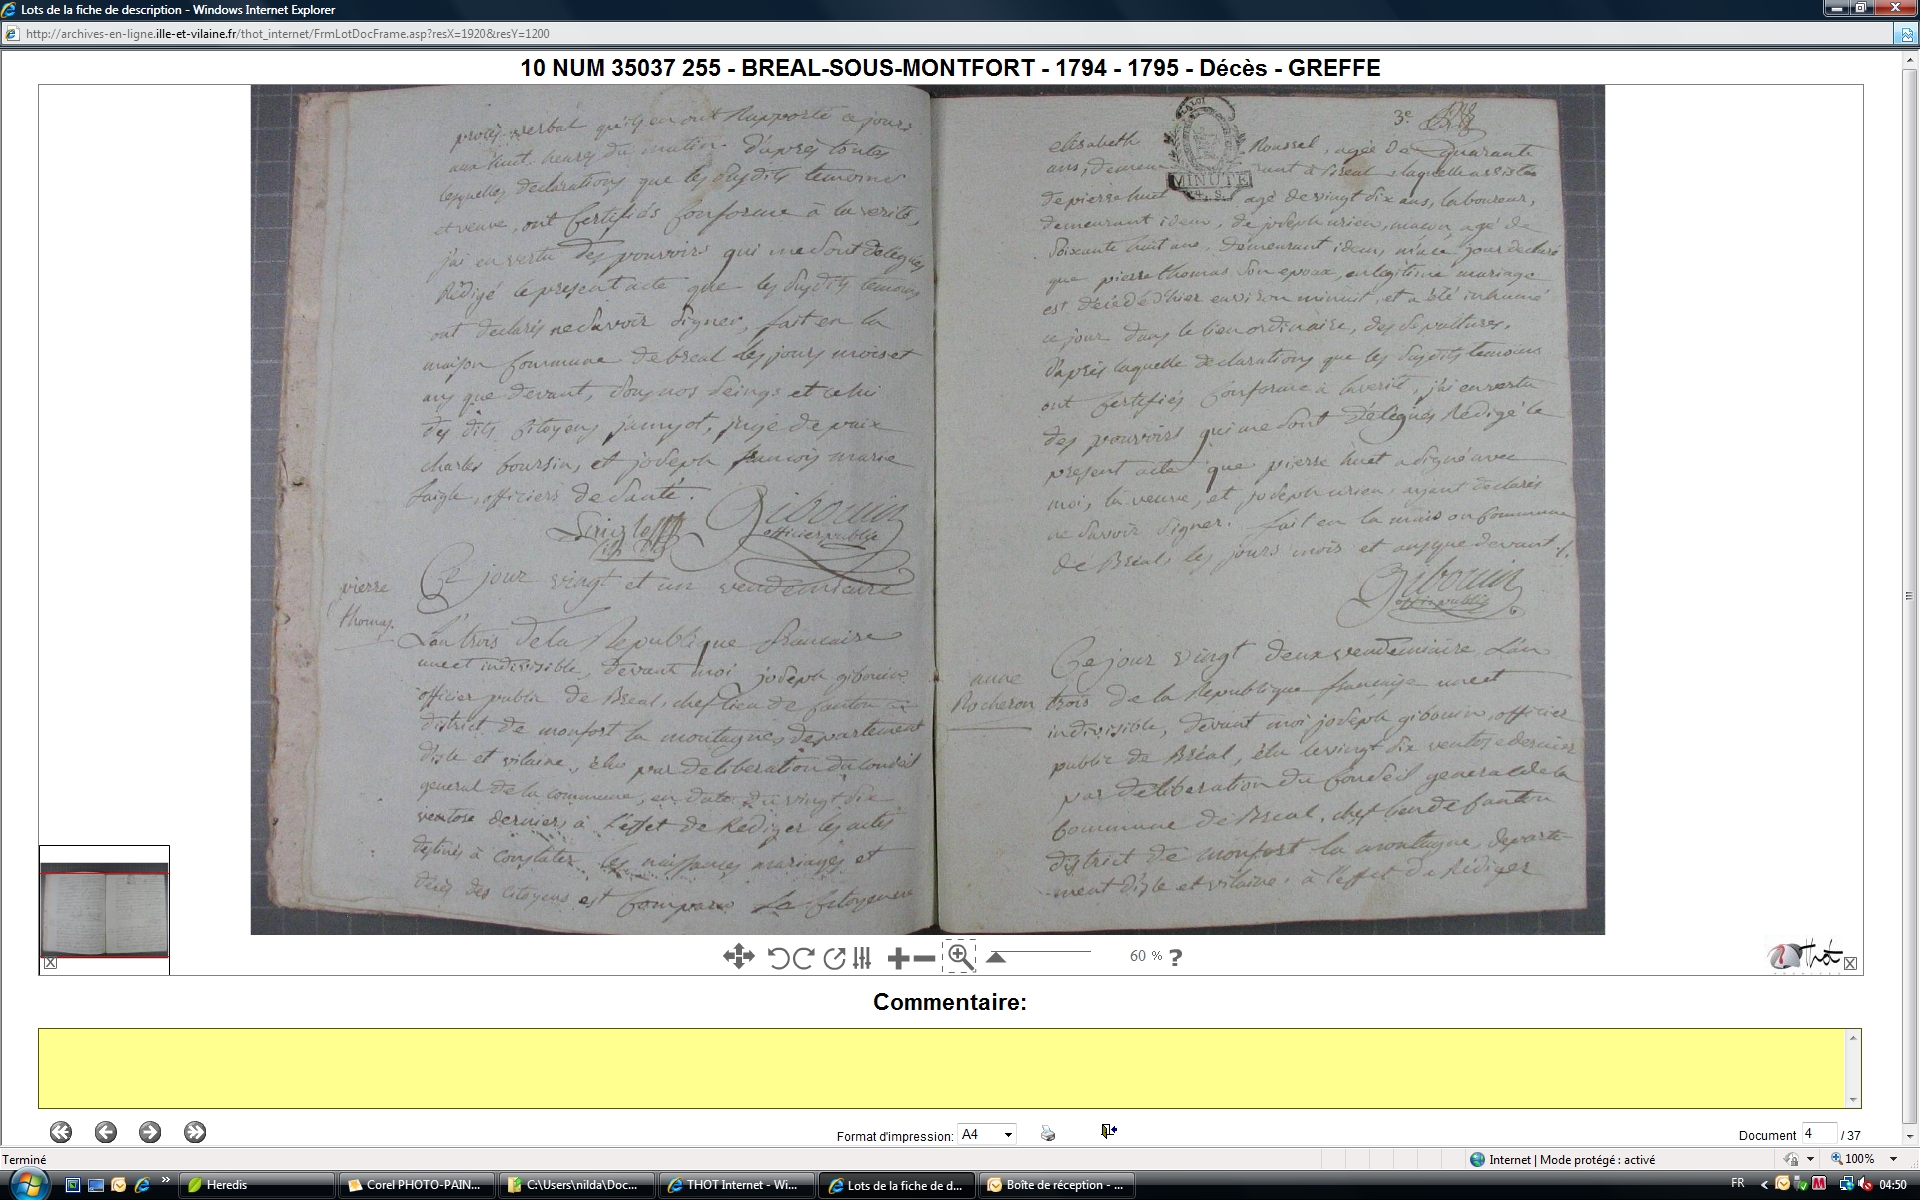 Lots de la fiche de description - Windows Internet Explorer
http://archives-en-ligne.ille-et-vilaine.fr/thot_internet/FrmLotDocFrame.asp?resX=1920&resY=1200
10 NUM 35037 255 - BREAL-SOUS-MONTFORT - 1794 - 1795 - Décès - GREFFE
procès verbal qu'ils en ont Rapporté ce jour
aux huit heures du matin. d'après toutes
lesquelles declarations que les susdits temoins
et veuve, ont Certifiés Conforme à la verité,
j'ai en vertu des pouvoirs qui me sont delegués
Rédigé le present acte que les susdits temoins
ont declarés ne savoir signer, fait en la
maison Commune de breal les jours mois et
ans que devant, sous nos seings et celui
des dits Citoyens, juge de paix
charles boursin, et joseph francois marie
officiers de santé.
Gibouin
officier public
pierre
thomas.
Ce jour vingt et un vendemiaire
L'an trois de la Republique francaise
une et indivisible, devant moi joseph gibouin
officier public de Breal, chef lieu de Canton
district de monfort la montagne, departement
d'isle et vilaine, élu par deliberation du Conseil
general de la commune, en date du vingt dix
ventose derniers à l'effet de Rediger les actes
destinés à Constater les naissances mariages et
décès des Citoyens est Comparu La Citoyenne
3e.
elisabeth Roussel, agée de quarante
ans, demeurant à breal laquelle assistée
de pierre huet agé de vingt dix ans, laboureur,
demeurant idem, de joseph urien, macon, agé de
soixante huit ans, demeurant idem, m'a ce jour declaré
que pierre thomas son epoux, en legitime mariage
est décédé d'hier environ minuit, et a été inhumé
ce jour dans le lieu ordinaire, des sepultures.
d'après laquelle declarations que les susdits temoins
ont Certifiés Conforme à la verité, j'ai en vertu
des pouvoirs qui me sont Délégués Rédigé le
present acte que pierre huet a signé avec
moi, la veuve, et joseph urien, ayant declarés
ne savoir signer. fait en la maison Commune
de Bréal les jours mois et ans que devant ./.
Gibouin
offi. public
anne
Rocheron
Ce jour vingt deux vendemiaire L'an
trois de la Republique française une et
indivisible, devant moi joseph gibouin, officier
public de Bréal, élu le vingt dix ventose dernier
par deliberation du Conseil general de la
Commune de Breal, chef lieu de Canton
district de monfort la montagne, departe-
ment d'isle et vilaine, à l'effet de Rédiger
LA LOI
MINUTE
60 % ?
Thot
Commentaire:
Format d'impression: A4
Document 4 / 37
Terminé
Internet | Mode protégé : activé
100%
Heredis
Corel PHOTO-PAIN...
C:\Users\nilda\Doc...
THOT Internet - Wi...
Lots de la fiche de d...
Boîte de réception - ...
FR
04:50